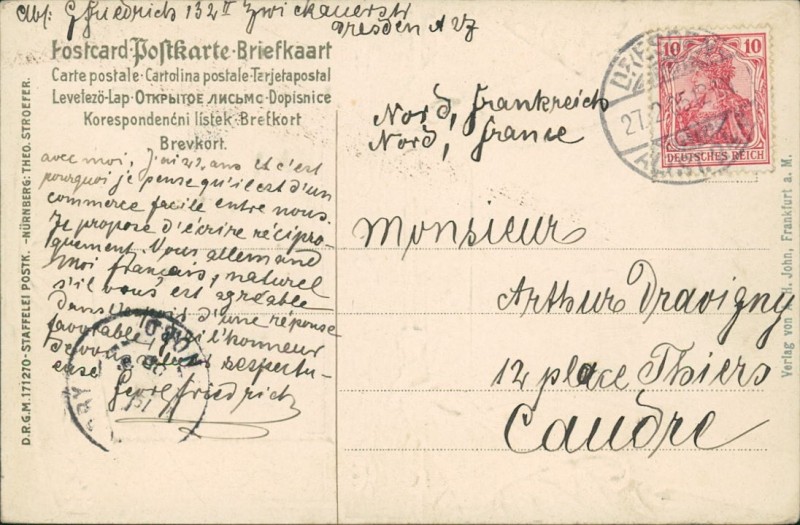 Abs: G Friedrich 132 II Zwickauerstr
Dresden A 27
Postcard·Postkarte·Briefkaart
Carte postale·Cartolina postale·Terjetapostal
Levelezö-Lap·Открытое письмс·Dopisnice
Korespondenčni lístek·Brefkort
Brevkort.
avec moi, J'ai 22 ans et c'est
pourquoi je pense qu'il est d'un
commerce facile entre nous.
Je propose d'écrire récipro-
quement. Vous allemand
moi français, naturel
s'il vous est agréable
Dans d'une réponse
favorable, j'ai l'honneur
De vous respectu-
euse
Georg Friedrich
D.R.G.M. 171270-STAFFELEI POSTK. -NÜRNBERG: THEO. STROEFER.
Nord, Frankreich
Nord, France
Monsieur
Arthur Dravigny
12 place Thiers
Caudre
10 10
DEUTSCHES REICH
DRESDEN
27.2.05
ALTST.
Verlag von H. John, Frankfurt a. M.